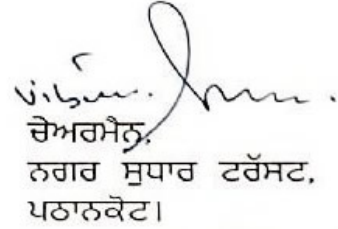 ਚੇਅਰਮੈਨ,
ਨਗਰ ਸੁਧਾਰ ਟਰੱਸਟ,
ਪਠਾਨਕੋਟ।